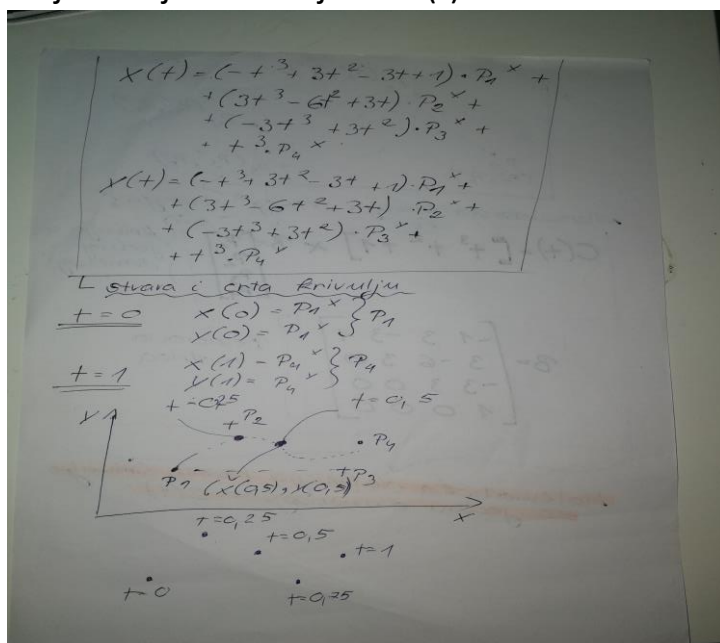 x(t) = (-t³ + 3t² - 3t + 1) · P₁ˣ +
+ (3t³ - 6t² + 3t) · P₂ˣ +
+ (-3t³ + 3t²) · P₃ˣ +
+ t³ · P₄ˣ
y(t) = (-t³ + 3t² - 3t + 1) · P₁ʸ +
+ (3t³ - 6t² + 3t) · P₂ʸ +
+ (-3t³ + 3t²) · P₃ʸ +
+ t³ · P₄ʸ
stvara i crta krivulju
t = 0 x(0) = P₁ˣ } P₁
y(0) = P₁ʸ
t = 1 x(1) - P₄ˣ } P₄
y(1) = P₄ʸ
t = 0,5
y
+ P₂
P₄
P₁ (x(0,5), y(0,5)) + P₃
x
t = 0,25
t = 0,5
t = 1
t = 0
t = 0,75